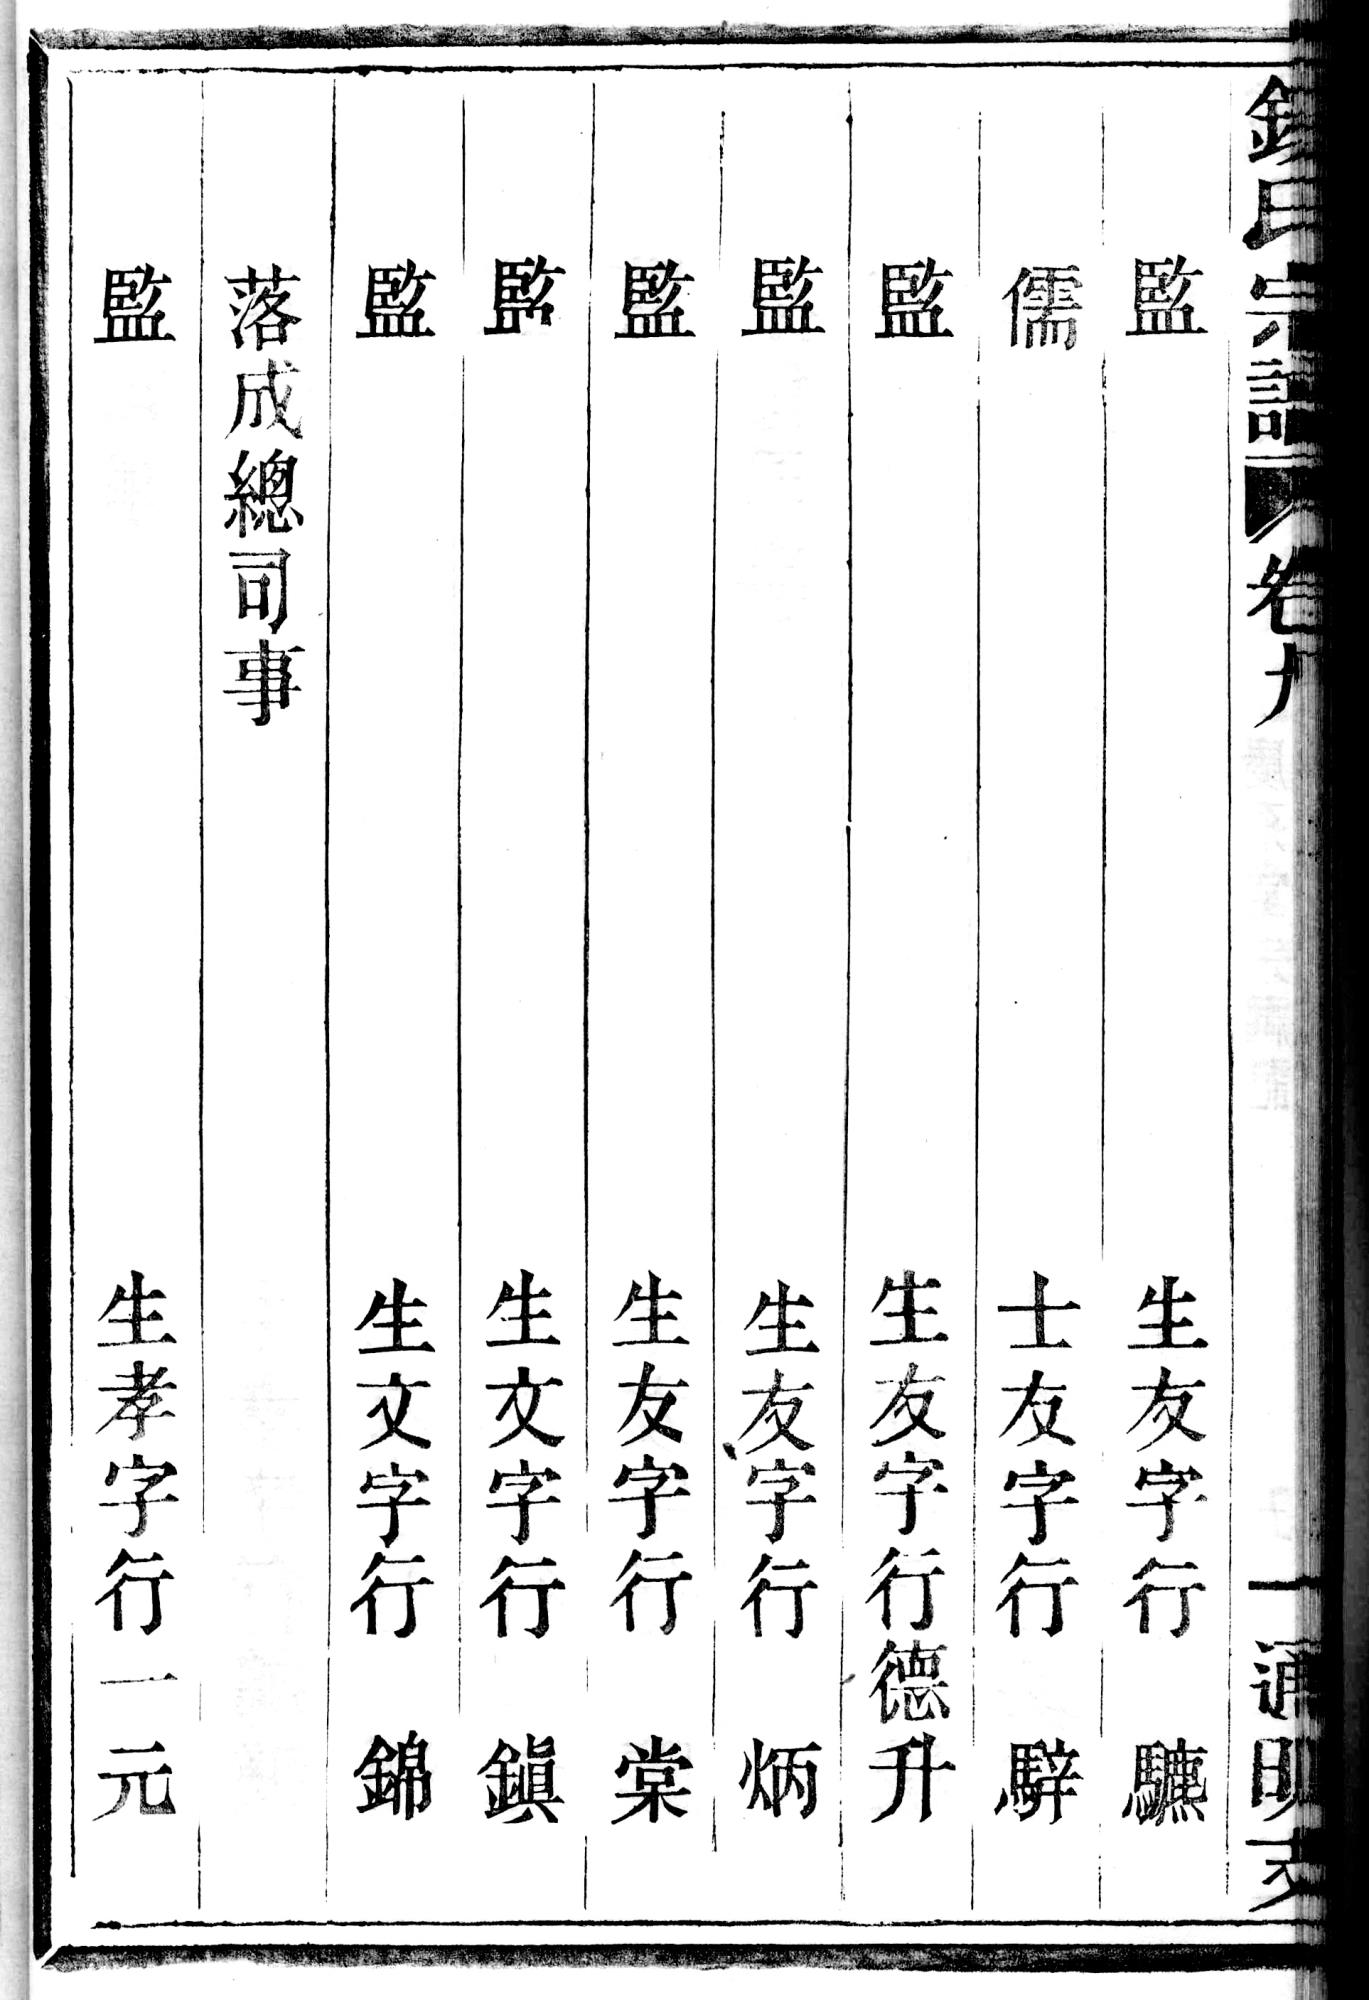 氏宗譜 卷九 一 通明支
監 生友字行 驠
儒 士友字行 騂
監 生友字行德升
監 生友字行 炳
監 生友字行 棠
監 生文字行 鎭
監 生文字行 錦
落成總司事
監 生孝字行一元